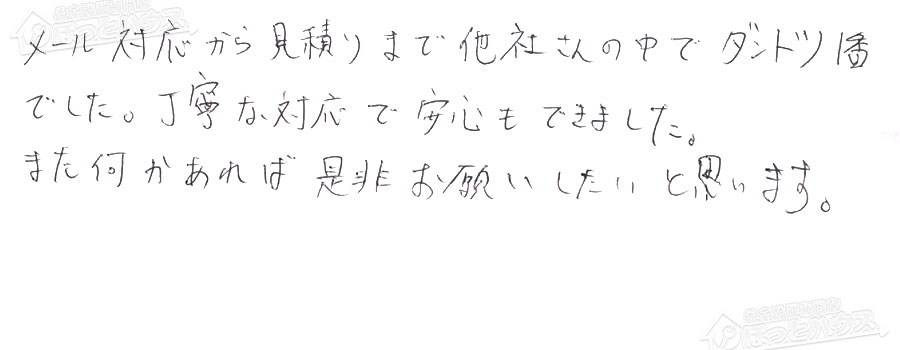 メール対応から見積りまで他社さんの中でダントツ1番
でした。丁寧な対応で安心もできました。
また何かあれば是非お願いしたいと思います。
ほっとハウス